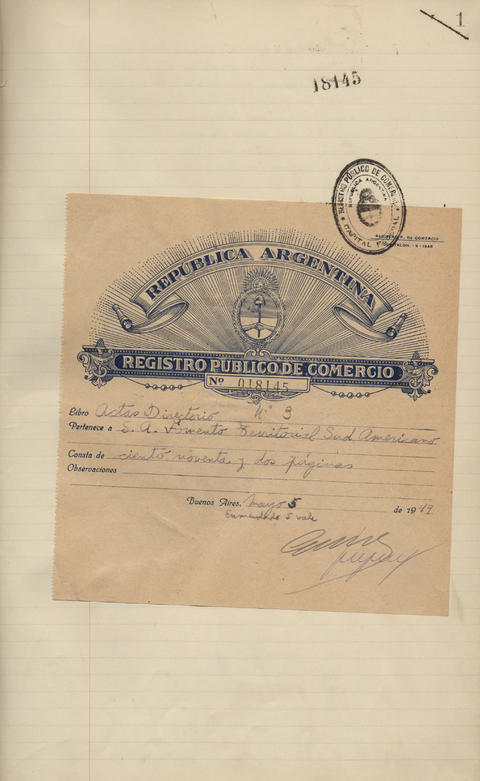 1
18145
REGISTRO PÚBLICO DE COMERCIO
REPUBLICA ARGENTINA
CAPITAL FEDERAL
REPÚBLICA ARGENTINA
REGISTRO PUBLICO DE COMERCIO
Nº 018145
Libro Actas Directorio Nº 3
Pertenece a S. A. Fomento Territorial Sud Americano
Consta de ciento noventa y dos páginas
Observaciones
Buenos Aires, Mayo 5 de 1949
Enmendado 5 vale